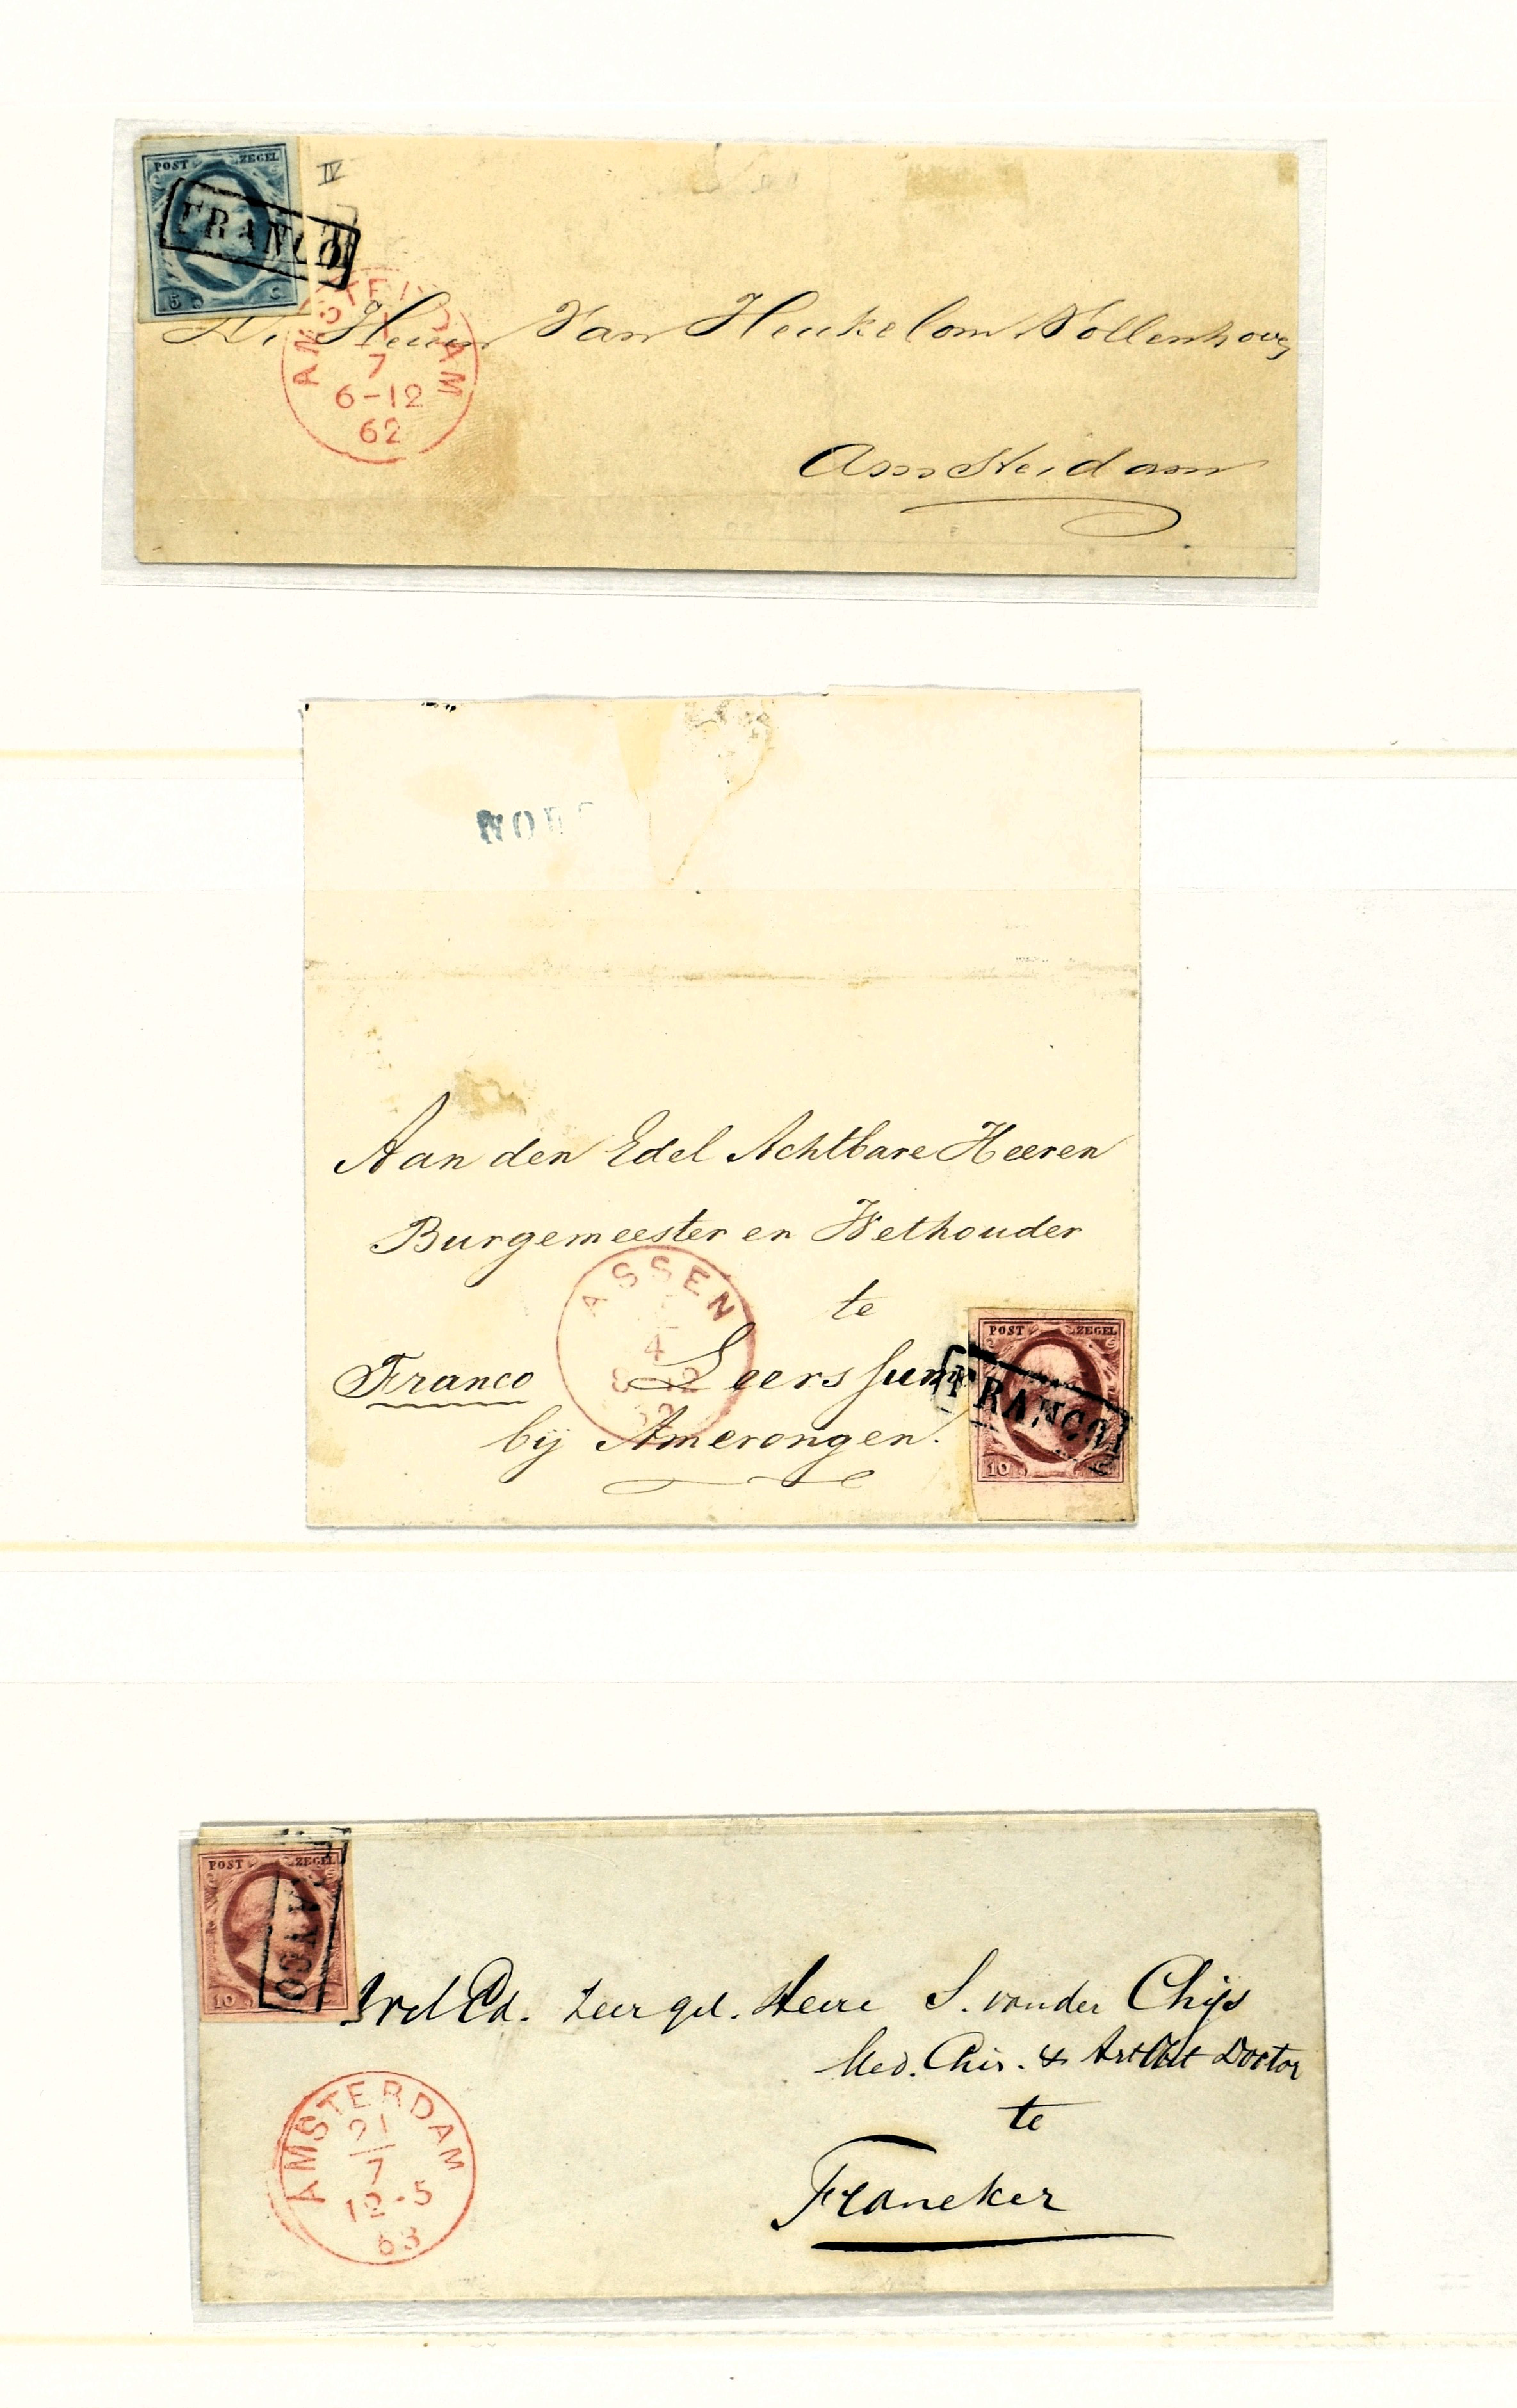 POST ZEGEL
IV
FRANCO
5 C
AMSTERDAM
7
6-12
62
De Heeren Van Heukelom & Vollenhove
Amsterdam
NOR
Aan den Edel Achtbare Heeren
Burgemeester en Wethouder
te
Leerssum
Franco
bij Amerongen.
ASSEN
4
POST ZEGEL
FRANCO
10 C
POST ZEGEL
FRANCO
10 C
Wel Ed. Zeer gel. Heere S. van der Chijs
Med. Chir. & Art Obst Doctor
te
Franeker
AMSTERDAM
21
7
12-5
63